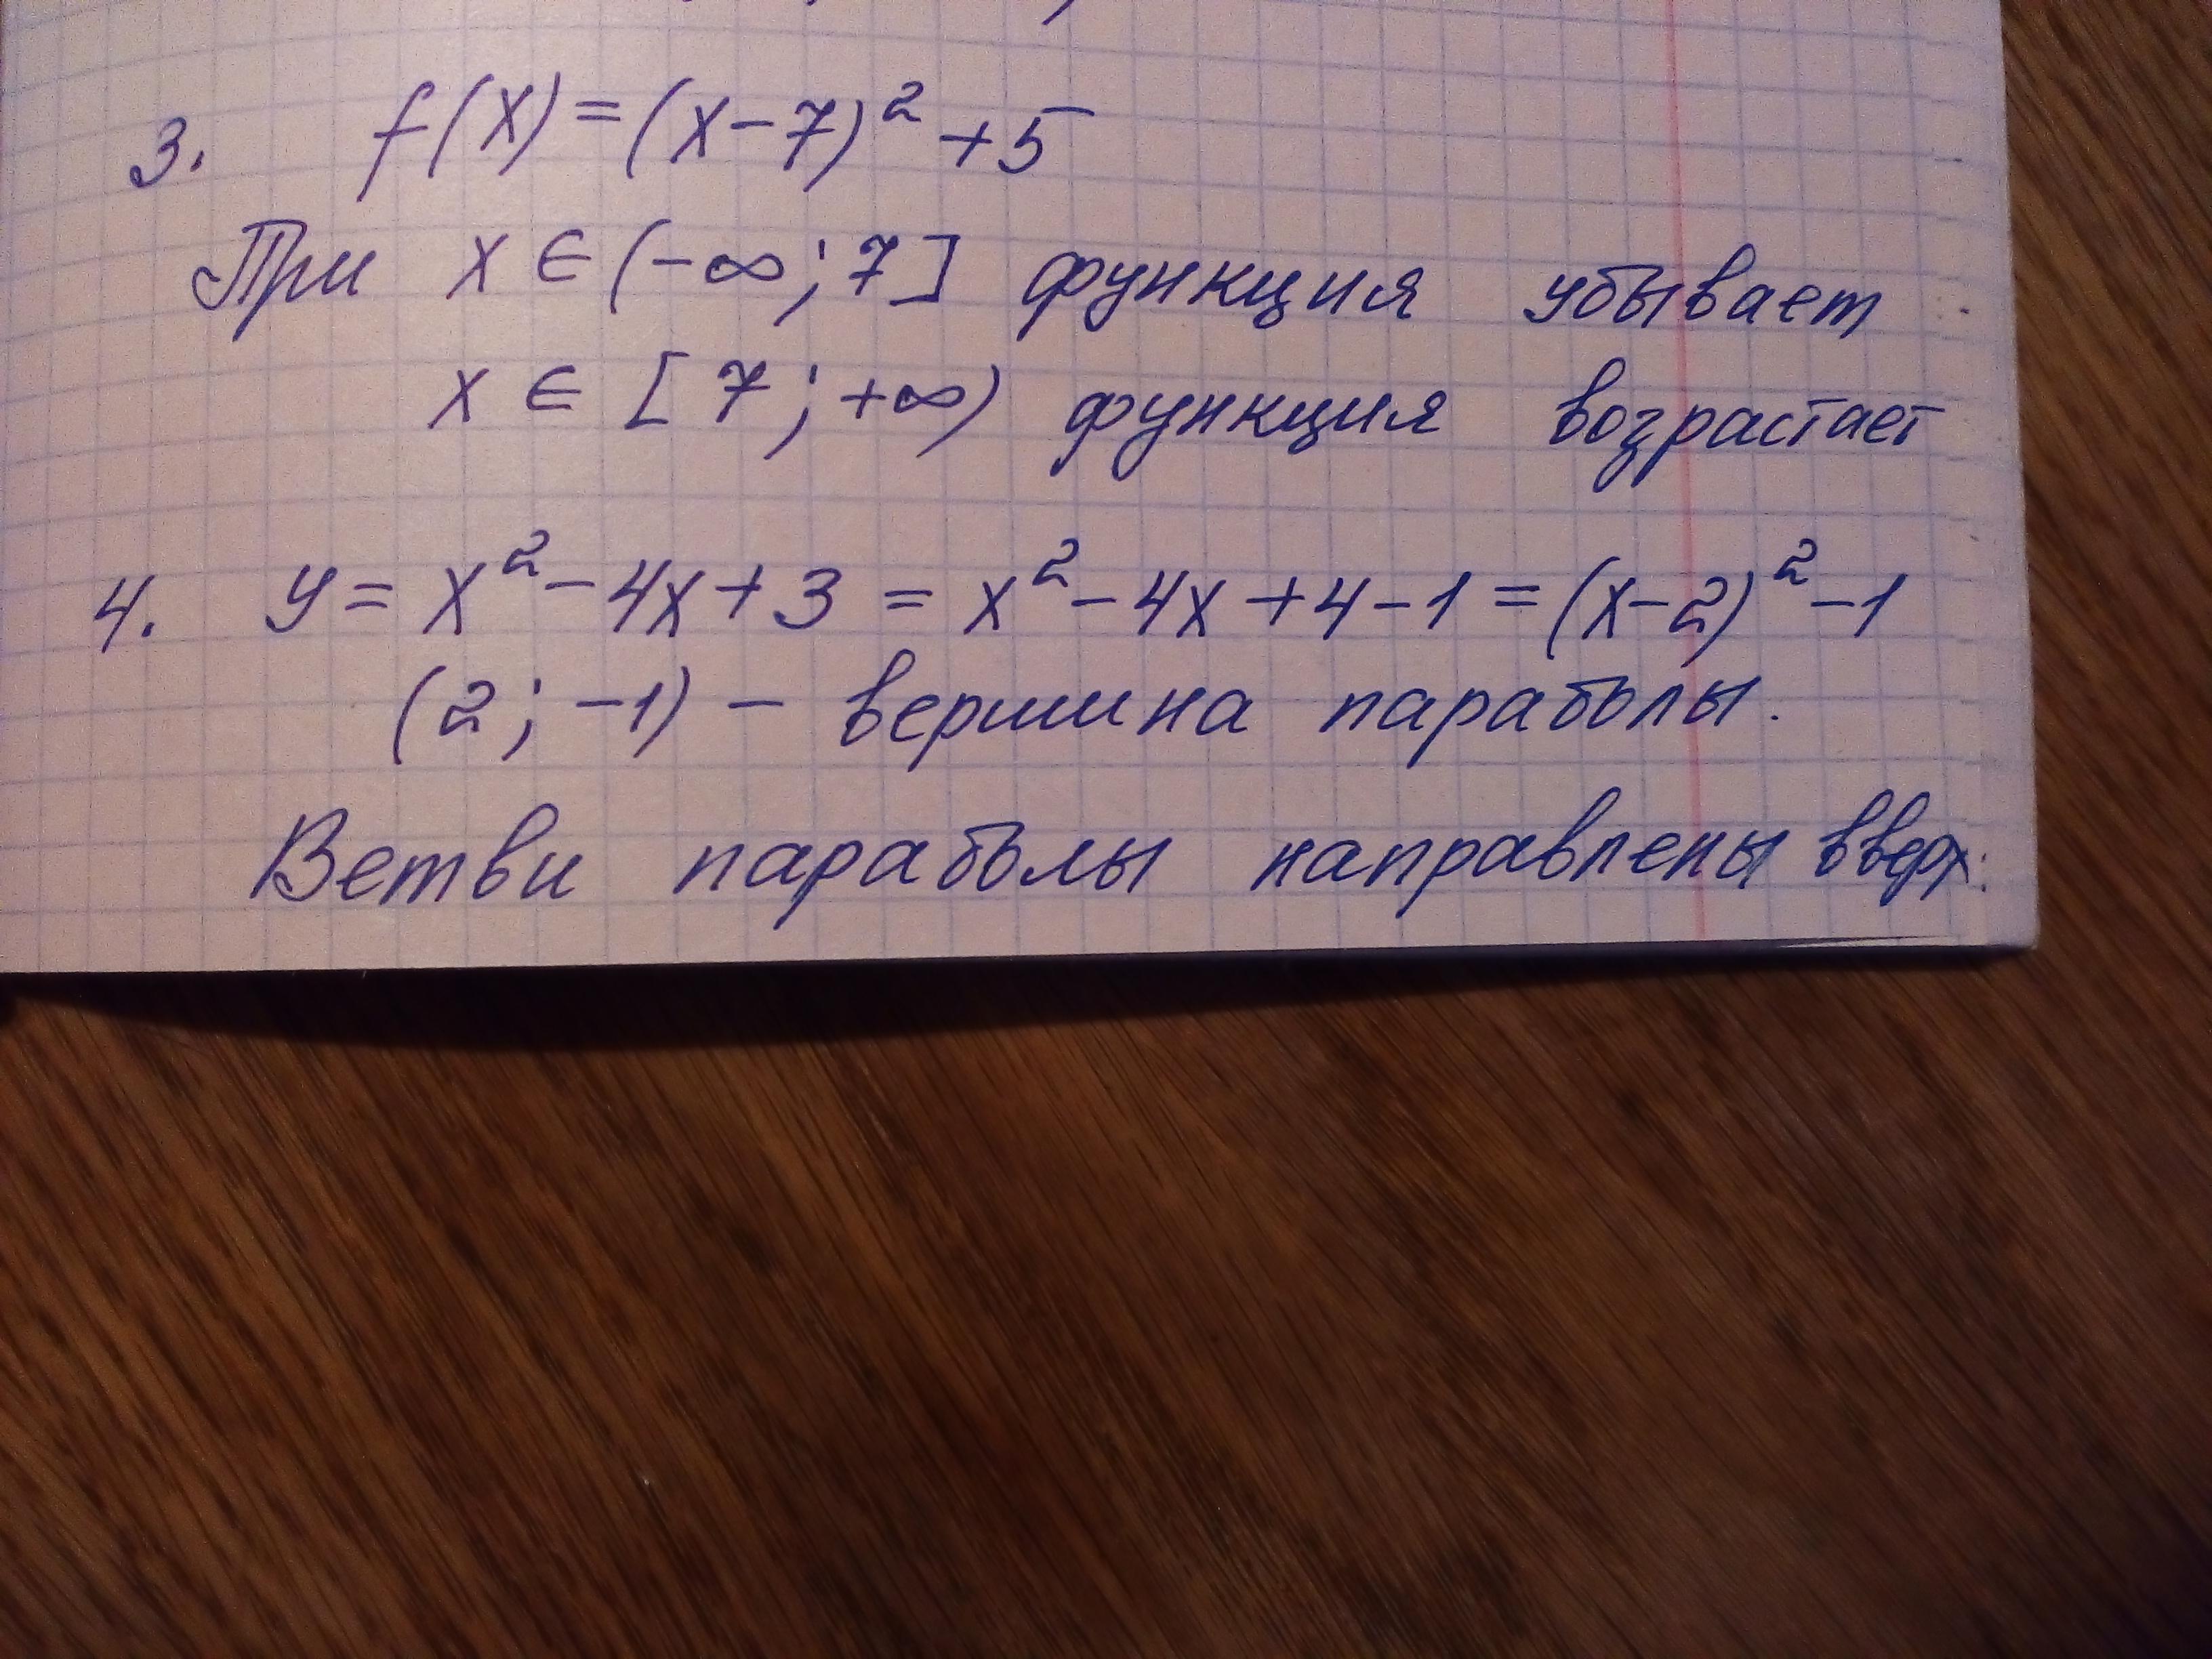 3. f(x)=(x-7)²+5
При x ∈ (-∞; 7] функция убывает
x ∈ [7; +∞) функция возрастает
4. y = x² - 4x + 3 = x² - 4x + 4 - 1 = (x-2)² - 1
(2; -1) - вершина параболы.
Ветви параболы направлены вверх.